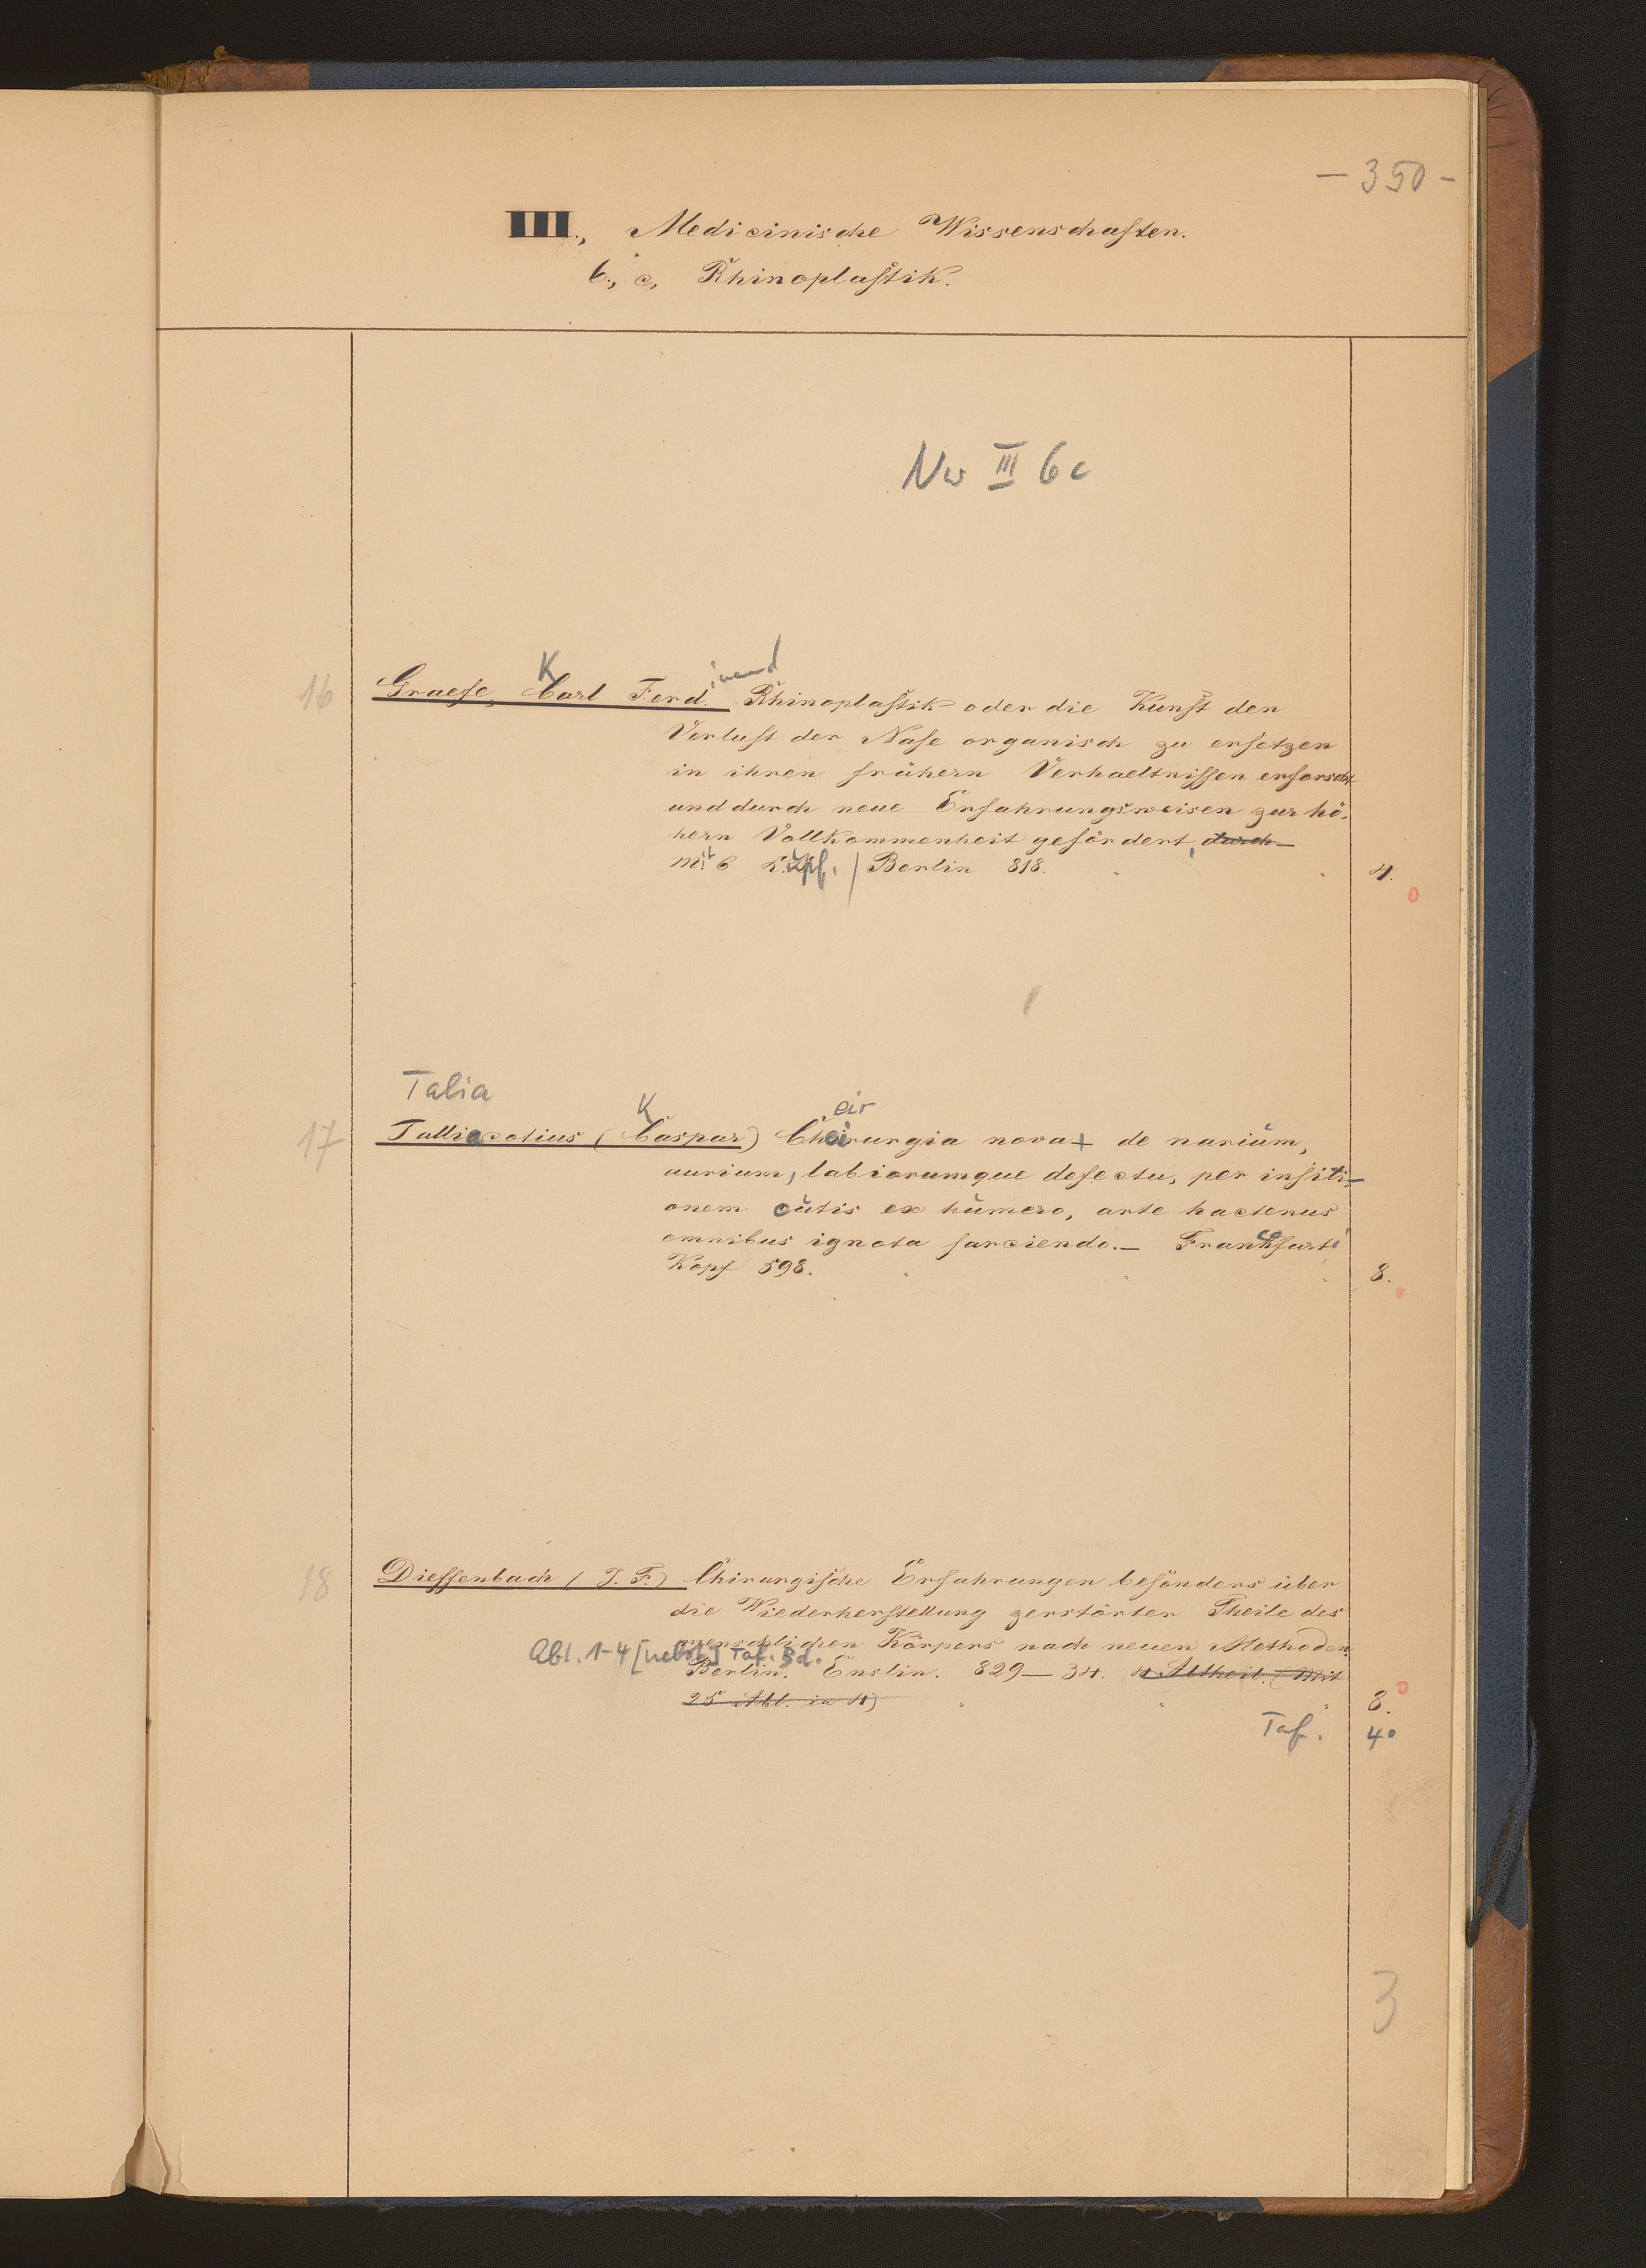 – 350 –
III., Medicinische Wissenschaften.
6., c, Rhinoplastik.
Nw III 6c
K inand
16 Graefe, Carl Ferd. Rhinoplastik oder die Kunst den
Verlust der Nase organisch zu ersetzen
in ihren frühern Verhaeltnissen erforscht
und durch neue Erfahrungsweisen zur hö-
hern Vollkommenheit gefördert, durch
mit 6 Kupf. / Berlin 818. " " 4.
0
Talia K eir
17 Talliacotius (Caspar) Cheirurgia nova + de narium,
aurium, labiorumque defectu, per insiti-
onem cutis ex humero, arte hactenus
omnibus ignota sarciendo. – Francofurti
Kopf 598. " " " 8.
0
18 Dieffenbach (J. F.) Chirurgische Erfahrungen besonders über
die Wiederherstellung zerstörter Theile des
menschlichen Körpers nach neuen Methoden.
Abt. 1-4 [nebst] Taf. Bd.
Berlin. Enslin. 829 – 34. 4 Abtheil. (Mit
25 Abl. in 4) " " " 8. 0
Taf. 4°
3